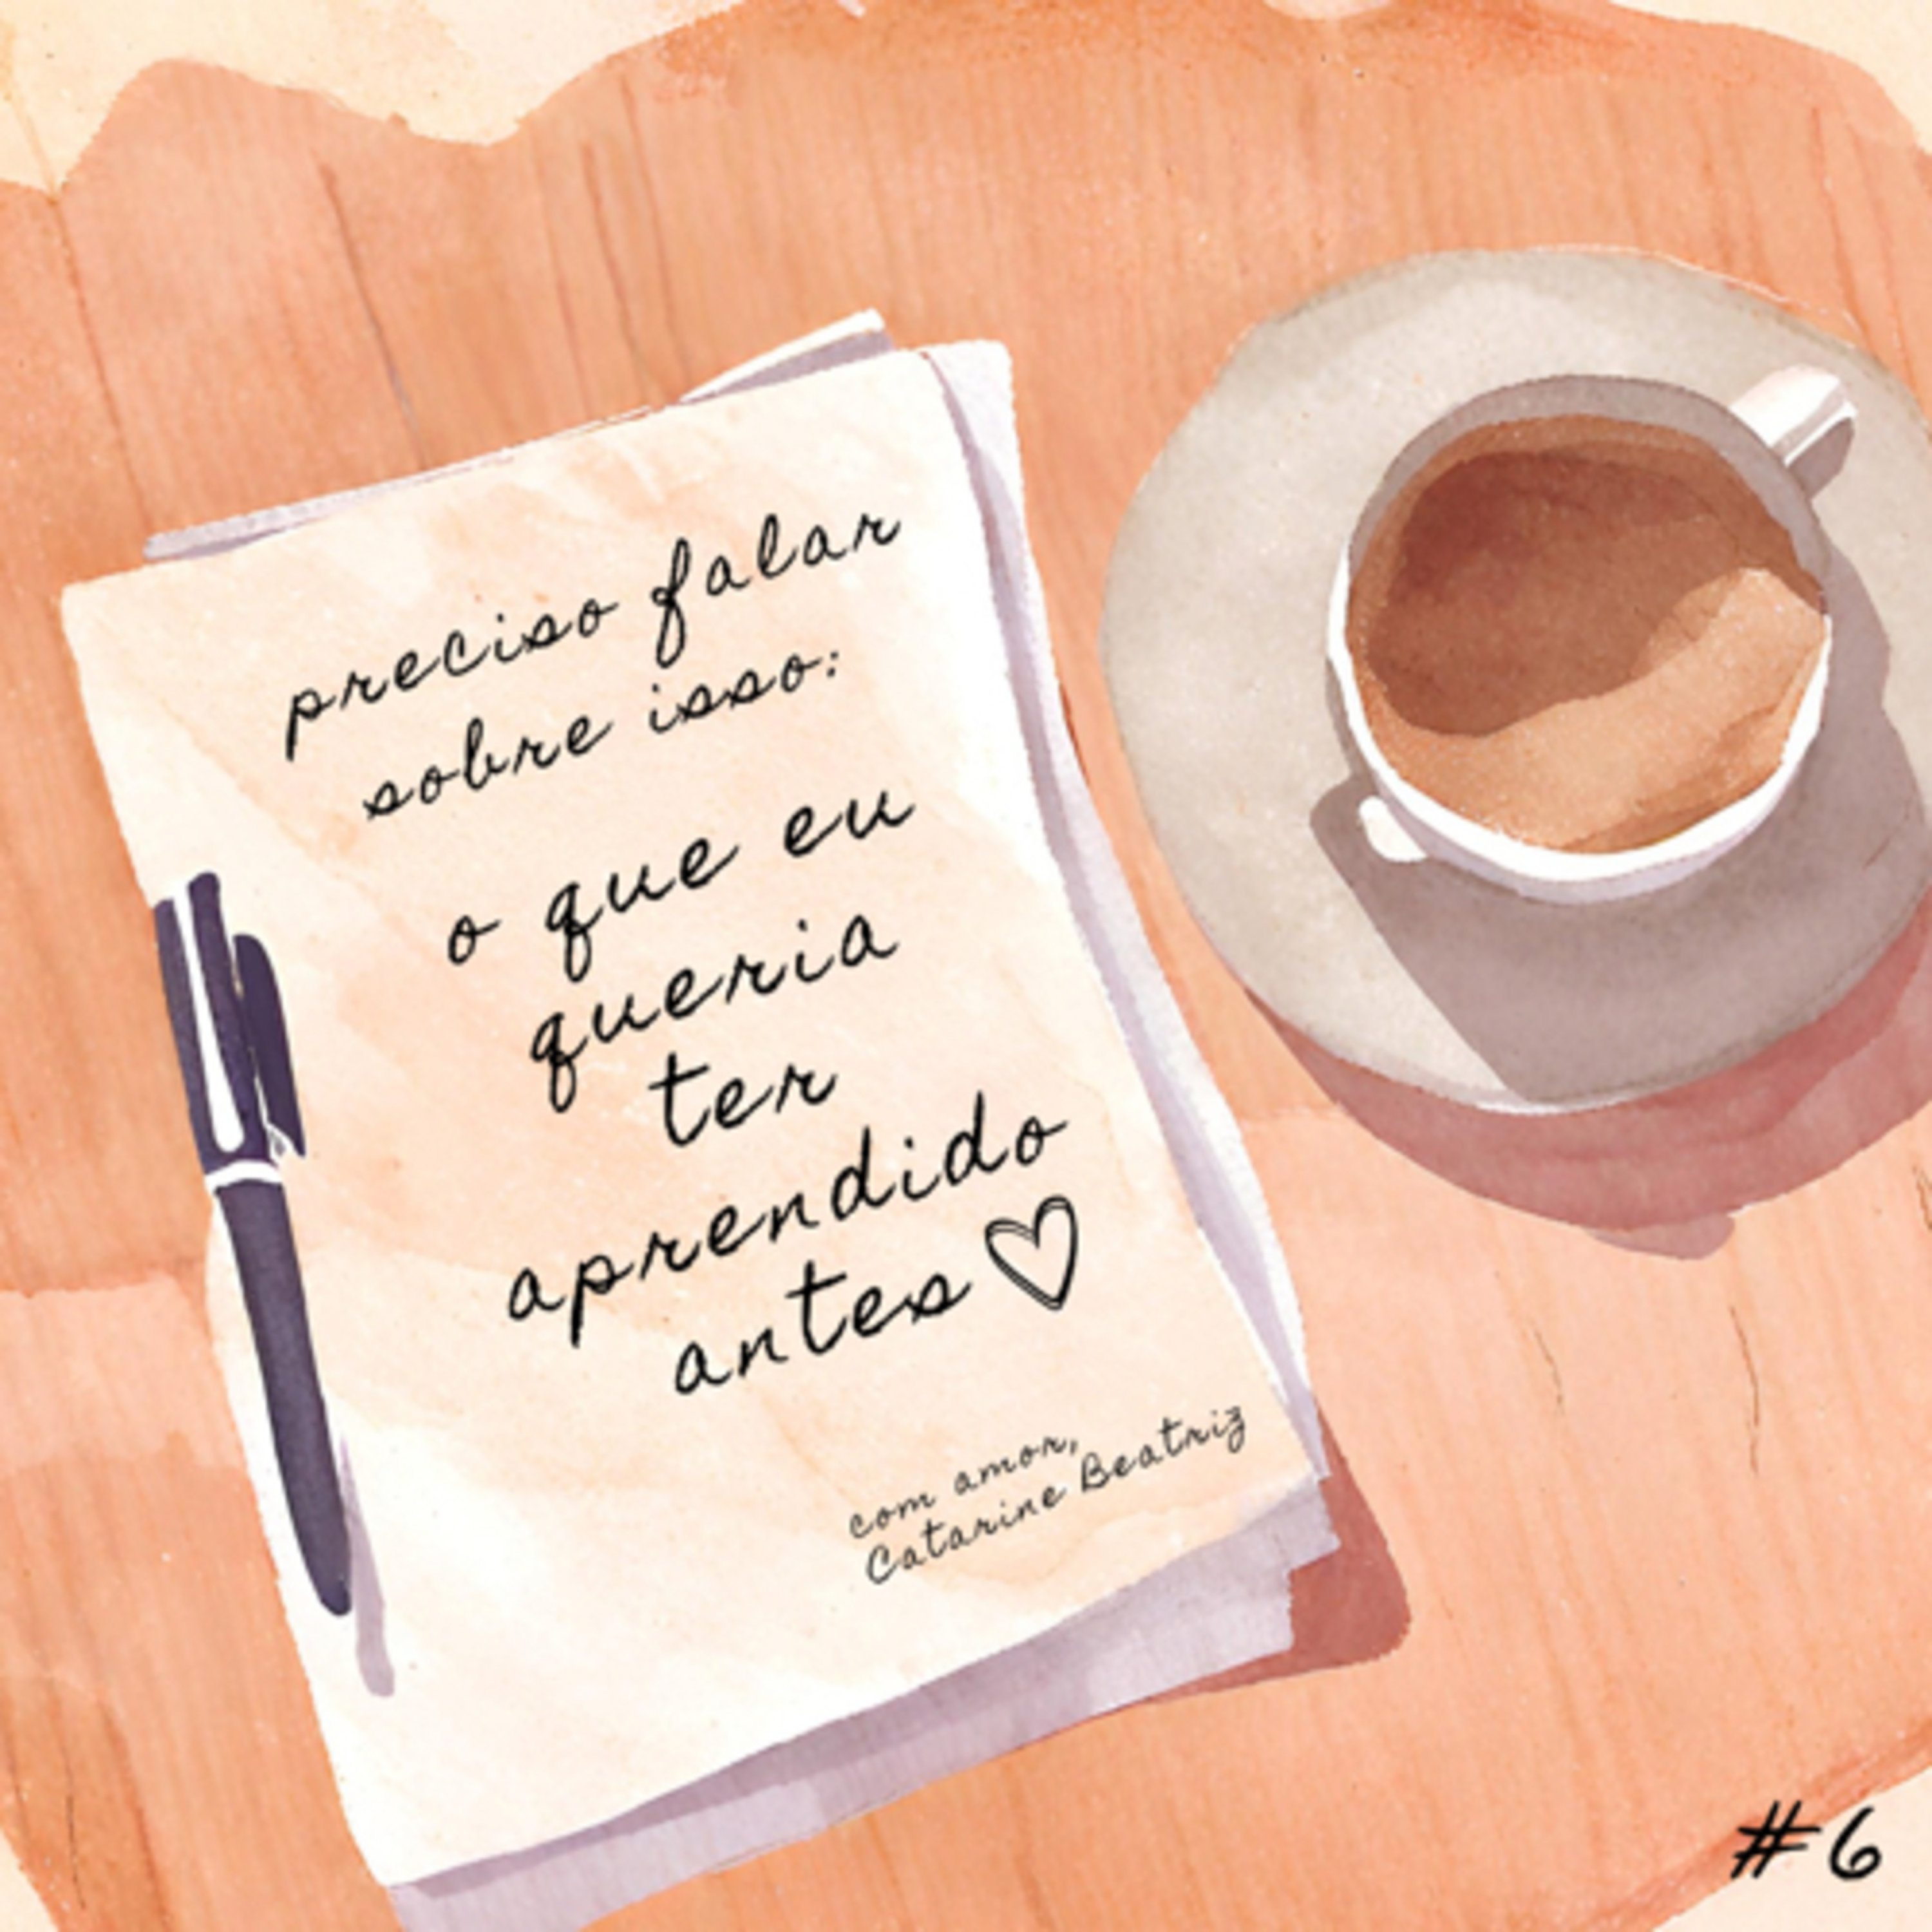 preciso falar
sobre isso:
o que eu
queria
ter
aprendido
antes
com amor,
Catarine Beatriz
#6